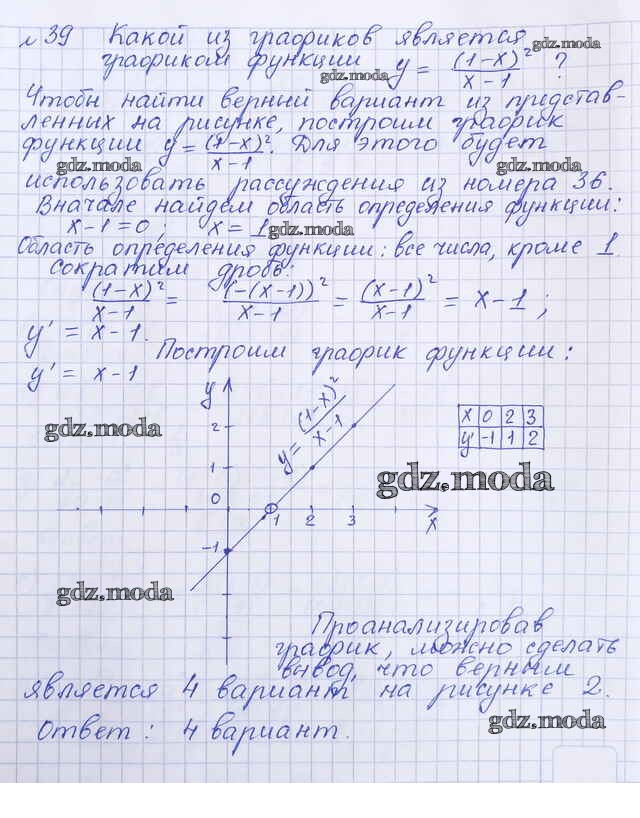 № 39 Какой из графиков является
графиком функции y = (1-x)²/(x-1) ?
Чтобы найти верный вариант из представ-
ленных на рисунке, построим график
функции y = (1-x)²/(x-1). Для этого будет
использовать рассуждения из номера 36.
Вначале найдем область определения функции:
x-1=0; x=1
Область определения функции: все числа, кроме 1.
Сократим дробь:
(1-x)²/(x-1) = (-(x-1))²/(x-1) = (x-1)²/(x-1) = x-1;
y' = x-1.
Построим график функции:
y' = x-1
y
y = (1-x)²/(x-1)
x 0 2 3
y' -1 1 2
2
1
0
1 2 3 x
-1
Проанализировав
график, можно сделать
вывод, что верным
является 4 вариант на рисунке 2.
Ответ: 4 вариант.
gdz.moda
gdz.moda
gdz.moda
gdz.moda
gdz.moda
gdz.moda
gdz.moda
gdz.moda
gdz.moda